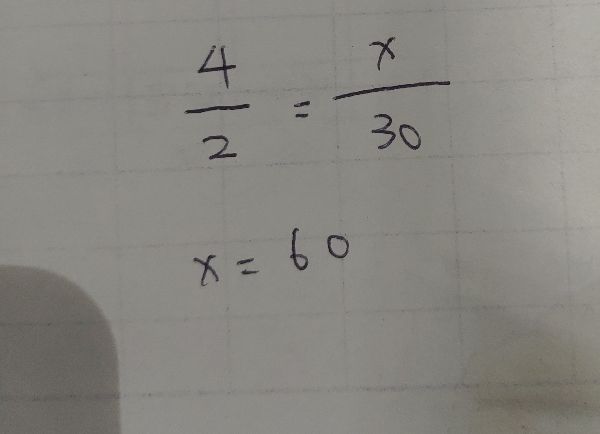 4/2 = x/30
x = 60